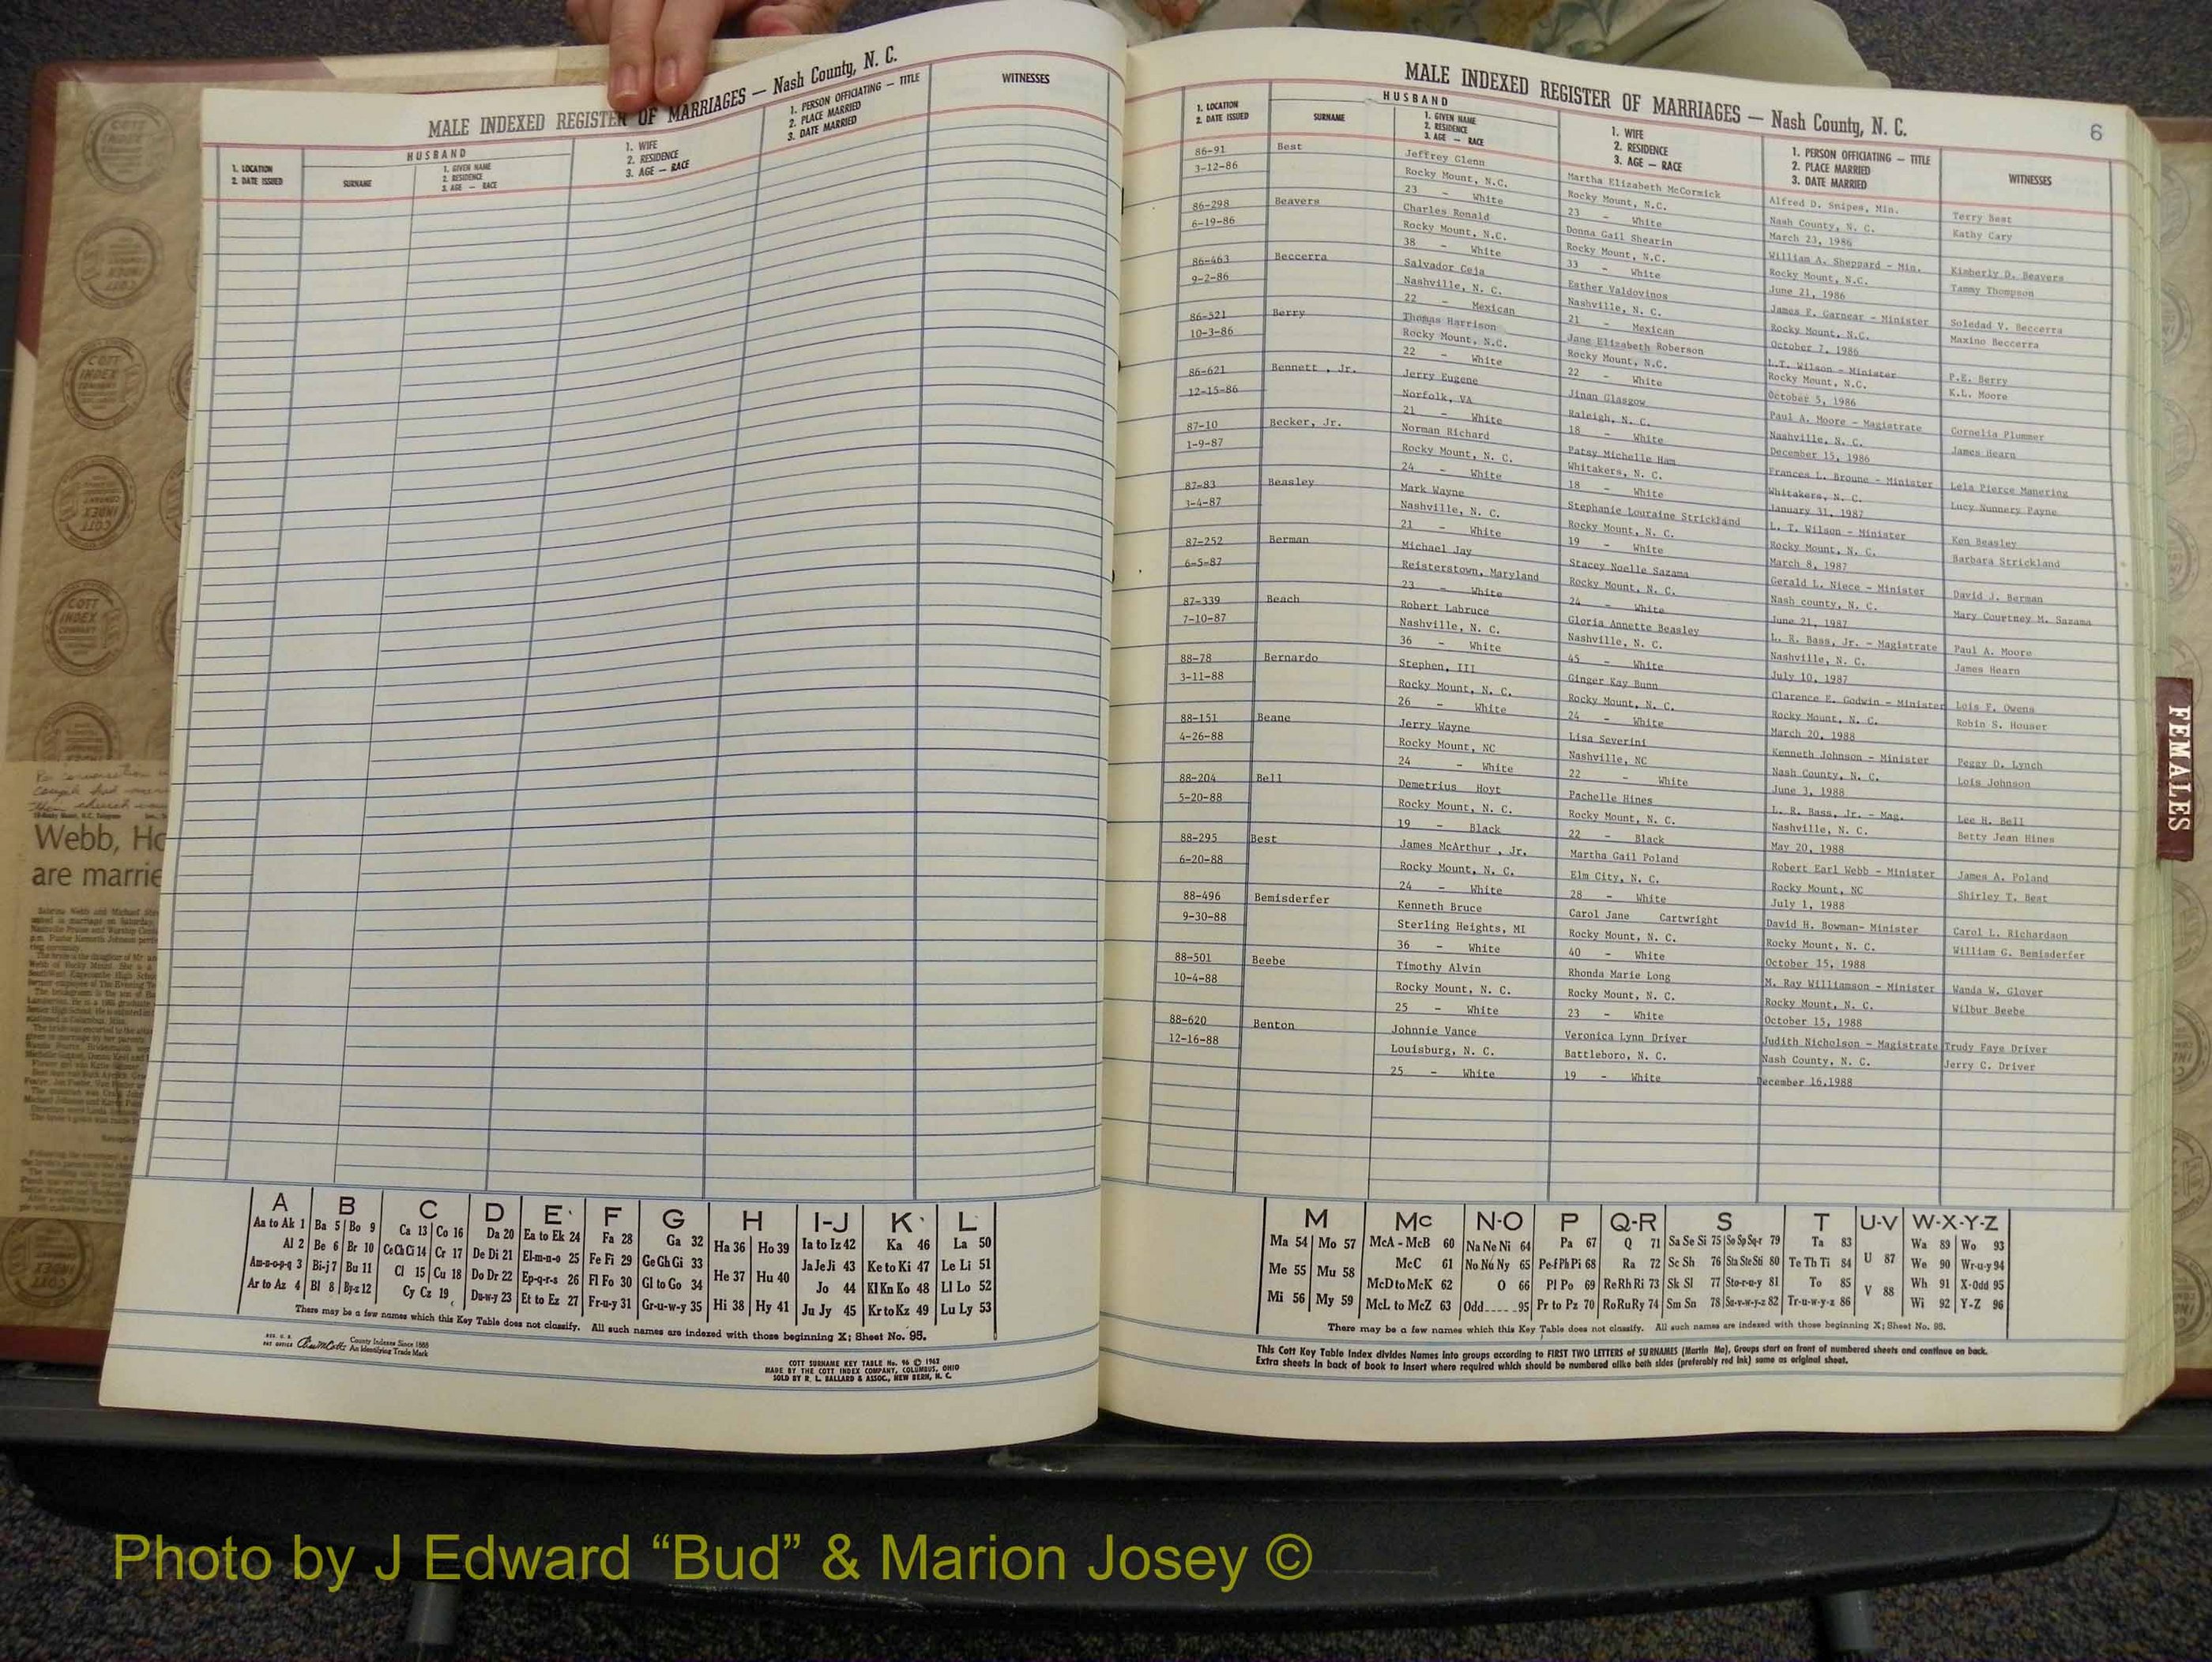 MALE INDEXED REGISTER OF MARRIAGES — Nash County, N. C.
1. LOCATION
2. DATE ISSUED
HUSBAND
SURNAME
1. GIVEN NAME
2. RESIDENCE
3. AGE — RACE
1. WIFE
2. RESIDENCE
3. AGE — RACE
1. PERSON OFFICIATING — TITLE
2. PLACE MARRIED
3. DATE MARRIED
WITNESSES
COTT
INDEX
COMPANY
Webb, Ho
are marrie
A B C D E F G H I-J K L
Aa to Ak 1 Ba 5 Bo 9 Ca 13 Co 16 Da 20 Ea to Ek 24 Fa 28 Ga 32 Ha 36 Ho 39 Ia to Iz 42 Ka 46 La 50
Al 2 Be 6 Br 10 Ce Ch Ci 14 Cr 17 De Di 21 El-m-n-o 25 Fe Fi 29 Ge Gh Gi 33 Ja Je Ji 43 Ke to Ki 47 Le Li 51
Am-n-o-p-q 3 Bi-j 7 Bu 11 Cl 15 Cu 18 Do Dr 22 Ep-q-r-s 26 Fl Fo 30 Gl to Go 34 He 37 Hu 40 Jo 44 Kl Kn Ko 48 Ll Lo 52
Ar to Az 4 Bl 8 By-z 12 Cy Cz 19 Du-w-y 23 Et to Ez 27 Fr-u-y 31 Gr-u-w-y 35 Hi 38 Hy 41 Ju Jy 45 Kr to Kz 49 Lu Ly 53
There may be a few names which this Key Table does not classify. All such names are indexed with those beginning X; Sheet No. 95.
County Indexes Since 1888
An Identifying Trade Mark
COTT SURNAME KEY TABLE No. 96 © 1962
MADE BY THE COTT INDEX COMPANY, COLUMBUS, OHIO
SOLD BY R. L. BALLARD & ASSOC., NEW BERN, N. C.
MALE INDEXED REGISTER OF MARRIAGES — Nash County, N. C.
6
1. LOCATION
2. DATE ISSUED
HUSBAND
SURNAME
1. GIVEN NAME
2. RESIDENCE
3. AGE — RACE
1. WIFE
2. RESIDENCE
3. AGE — RACE
1. PERSON OFFICIATING — TITLE
2. PLACE MARRIED
3. DATE MARRIED
WITNESSES
86-91 Best Jeffrey Glenn Martha Elizabeth McCormick Alfred D. Snipes, Min. Terry Best
3-12-86 Rocky Mount, N.C. Rocky Mount, N.C. Nash County, N. C. Kathy Cary
23 - White 23 - White March 23, 1986
86-298 Beavers Charles Ronald Donna Gail Shearin William A. Sheppard - Min. Kimberly D. Beavers
6-19-86 Rocky Mount, N.C. Rocky Mount, N.C. Rocky Mount, N.C. Tammy Thompson
38 - White 33 - White June 21, 1986
86-463 Beccerra Salvador Ceja Esther Valdovinos James F. Garnear - Minister Soledad V. Beccerra
9-2-86 Nashville, N. C. Nashville, N. C. Rocky Mount, N.C. Maxino Beccerra
22 - Mexican 21 - Mexican October 7, 1986
86-521 Berry Thomas Harrison Jane Elizabeth Roberson L.T. Wilson - Minister P.E. Berry
10-3-86 Rocky Mount, N.C. Rocky Mount, N.C. Rocky Mount, N.C. K.L. Moore
22 - White 22 - White October 5, 1986
86-621 Bennett , Jr. Jerry Eugene Jinan Glasgow Paul A. Moore - Magistrate Cornelia Plummer
12-15-86 Norfolk, VA Raleigh, N. C. Nashville, N. C. James Hearn
21 - White 18 - White December 15, 1986
87-10 Becker, Jr. Norman Richard Patsy Michelle Ham Frances L. Broune - Minister Lela Pierce Manering
1-9-87 Rocky Mount, N. C. Whitakers, N. C. Whitakers, N. C. Lucy Nunnery Payne
24 - White 18 - White January 31, 1987
87-83 Beasley Mark Wayne Stephanie Louraine Strickland L. T. Wilson - Minister Ken Beasley
3-4-87 Nashville, N. C. Rocky Mount, N. C. Rocky Mount, N. C. Barbara Strickland
21 - White 19 - White March 8, 1987
87-252 Berman Michael Jay Stacey Noelle Sazama Gerald L. Niece - Minister David J. Berman
6-5-87 Reisterstown, Maryland Rocky Mount, N. C. Nash county, N. C. Mary Courtney M. Sazama
23 - White 24 - White June 21, 1987
87-339 Beach Robert Labruce Gloria Annette Beasley L. R. Bass, Jr. - Magistrate Paul A. Moore
7-10-87 Nashville, N. C. Nashville, N. C. Nashville, N. C. James Hearn
36 - White 45 - White July 10, 1987
88-78 Bernardo Stephen, III Ginger Kay Bunn Clarence E. Godwin - Minister Lois F. Owens
3-11-88 Rocky Mount, N. C. Rocky Mount, N. C. Rocky Mount, N. C. Robin S. Houser
26 - White 24 - White March 20, 1988
88-151 Beane Jerry Wayne Lisa Severini Kenneth Johnson - Minister Peggy D. Lynch
4-26-88 Rocky Mount, NC Nashville, NC Nash County, N. C. Lois Johnson
24 - White 22 - White June 3, 1988
88-204 Bell Demetrius Hoyt Pachelle Hines L. R. Bass, Jr. - Mag. Lee H. Bell
5-20-88 Rocky Mount, N. C. Rocky Mount, N. C. Nashville, N. C. Betty Jean Hines
19 - Black 22 - Black May 20, 1988
88-295 Best James McArthur , Jr. Martha Gail Poland Robert Earl Webb - Minister James A. Poland
6-20-88 Rocky Mount, N. C. Elm City, N. C. Rocky Mount, NC Shirley T. Best
24 - White 28 - White July 1, 1988
88-496 Bemisderfer Kenneth Bruce Carol Jane Cartwright David H. Bowman- Minister Carol L. Richardson
9-30-88 Sterling Heights, MI Rocky Mount, N. C. Rocky Mount, N. C. William G. Bemisderfer
36 - White 40 - White October 15, 1988
88-501 Beebe Timothy Alvin Rhonda Marie Long M. Ray Williamson - Minister Wanda W. Glover
10-4-88 Rocky Mount, N. C. Rocky Mount, N. C. Rocky Mount, N. C. Wilbur Beebe
25 - White 23 - White October 15, 1988
88-620 Benton Johnnie Vance Veronica Lynn Driver Judith Nicholson - Magistrate Trudy Faye Driver
12-16-88 Louisburg, N. C. Battleboro, N. C. Nash County, N. C. Jerry C. Driver
25 - White 19 - White December 16,1988
FEMALES
M Mc N-O P Q-R S T U-V W-X-Y-Z
Ma 54 Mo 57 McA - McB 60 Na Ne Ni 64 Pa 67 Q 71 Sa Se Si 75 So Sp Sq-r 79 Ta 83 Wa 89 Wo 93
Me 55 Mu 58 McC 61 No Nu Ny 65 Pe-f Ph Pi 68 Ra 72 Sc Sh 76 Sta Ste Sti 80 Te Th Ti 84 U 87 We 90 Wr-u-y 94
McD to McK 62 O 66 Pl Po 69 Re Rh Ri 73 Sk Sl 77 Sto-r-u-y 81 To 85 Wh 91 X-Odd 95
Mi 56 My 59 McL to McZ 63 Odd 95 Pr to Pz 70 Ro Ru Ry 74 Sm Sn 78 Su-v-w-y-z 82 Tr-u-w-y-z 86 V 88 Wi 92 Y-Z 96
There may be a few names which this Key Table does not classify. All such names are indexed with those beginning X; Sheet No. 95.
This Cott Key Table Index divides Names into groups according to FIRST TWO LETTERS of SURNAMES (Martin Ma), Groups start on front of numbered sheets and continue on back.
Extra sheets in back of book to insert where required which should be numbered alike both sides (preferably red ink) same as original sheet.
Photo by J Edward “Bud” & Marion Josey ©